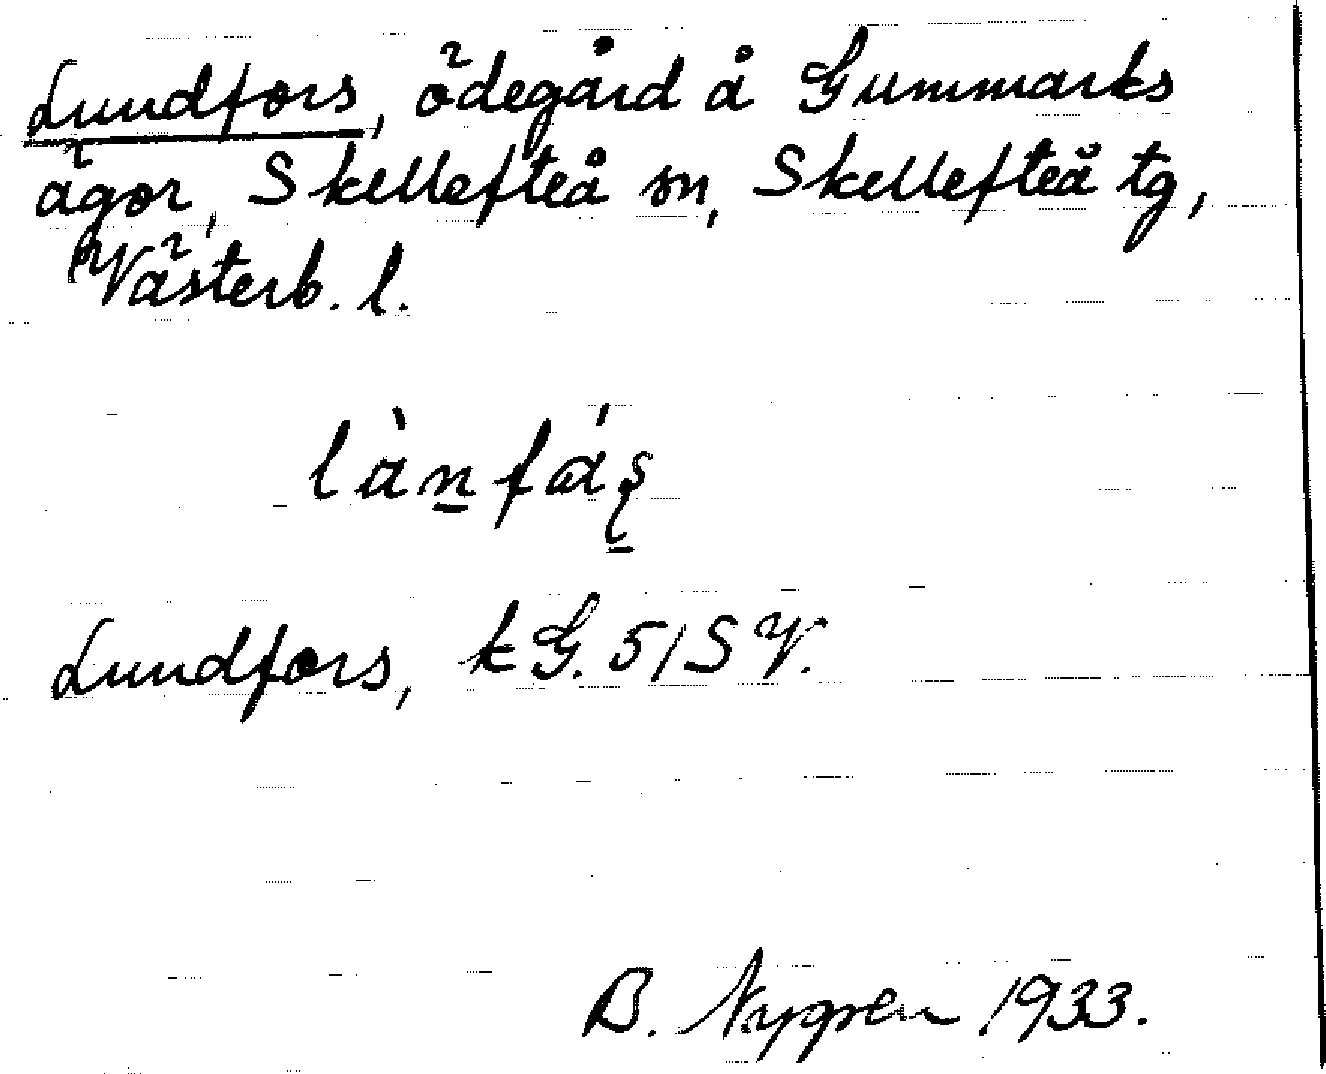 Lundfors, ödegård å Gummarks
ägor, Skellefteå sn, Skellefteå tg,
Västerb. l.
Lundfors, kG. 51 SV.
B. Nygren 1933.